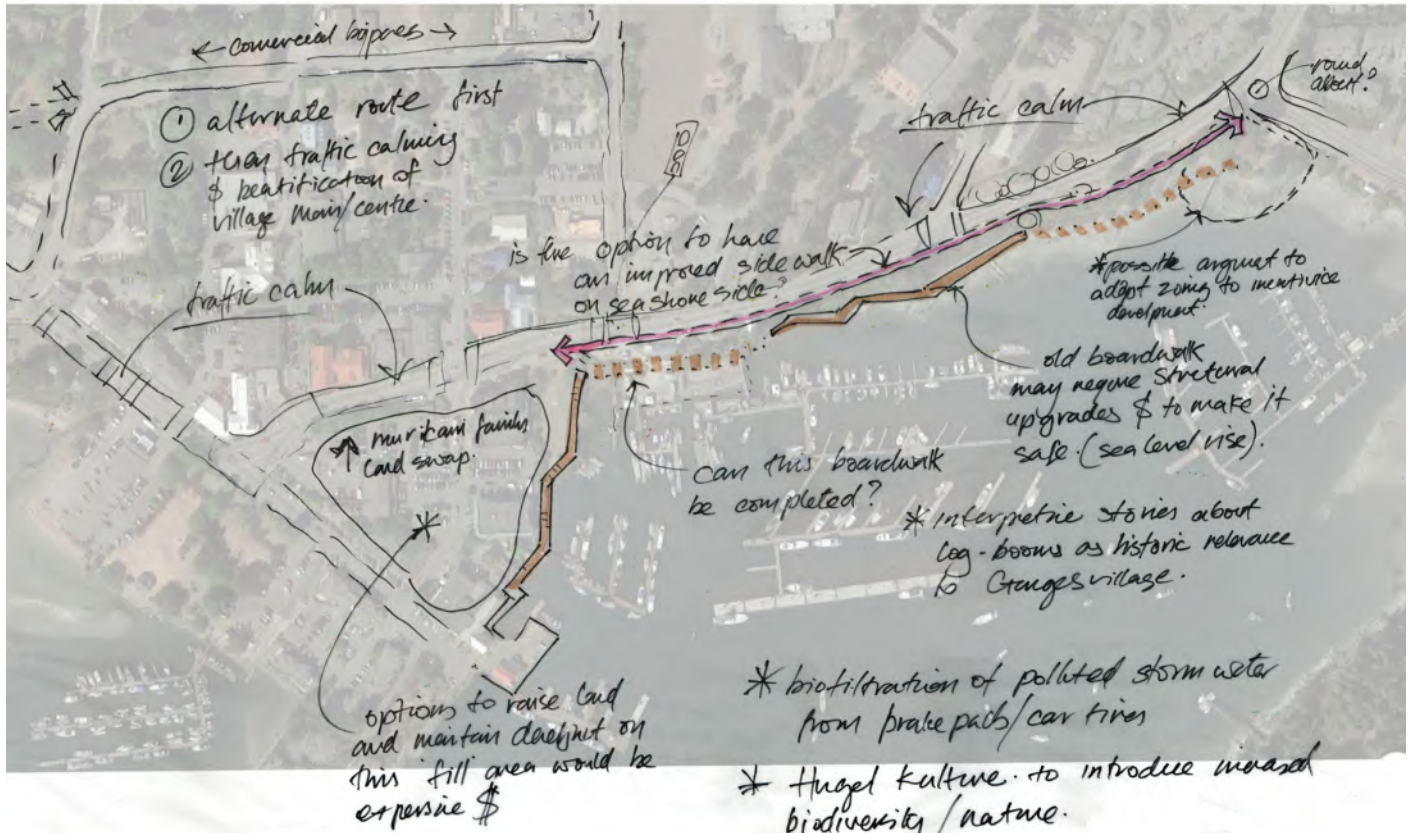 ← comercial bypass →
① alternate route first
② then traffic calming
$ beatification of
village main/centre.
traffic calm
is the option to have
an improved side walk
on seashore side?
traffic calm
round
about?
*possible argument to
adapt zoning to incentivice
develpment.
old boardwalk
may require structural
upgrades $ to make it
safe. (sea level rise).
family
land swap.
can this boardwalk
be completed?
* interpretive stories about
log-booms as historic relevance
to Ganges village.
options to raise land
and maintain on
this fill area would be
expensive $
* biofiltration of polluted storm water
from brake pads/car tires
* Hugel Kulture. to introduce increased
biodiversity / nature.